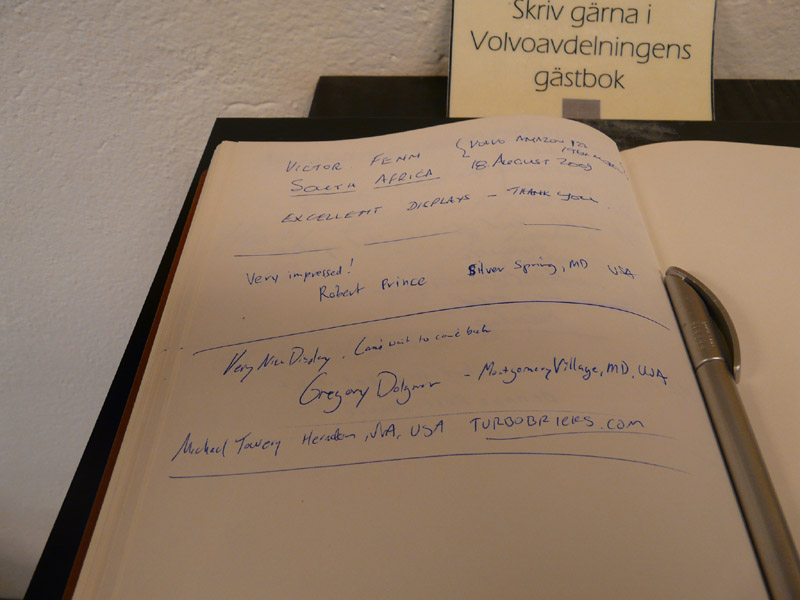 Skriv gärna i
Volvoavdelningens
gästbok
VICTOR FENM { VOLVO AMAZON
SOUTH AFRICA 18 AUGUST 2009
EXCELLEMT DISPLAYS - THANK YOU.
Very impressed!
Robert Prince Silver Spring, MD USA
Very Nice Display. Can't wait to come back
Gregory - Montgomery Village, MD, USA
Michael Towery Herndon, VA, USA TURBOBRICKS.COM